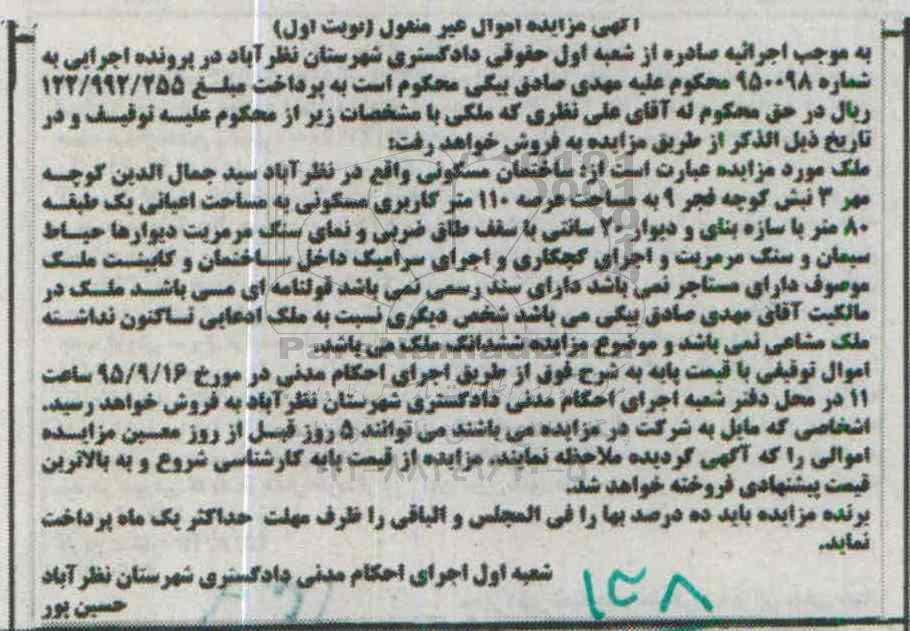 آگهی مزایده اموال غیر منقول (نوبت اول)
به موجب اجرائیه صادره از شعبه اول حقوقی دادگستری شهرستان نظرآباد در پرونده اجرایی به
شماره ۹۵۰۰۹۸ محکوم علیه مهدی صادق بیگی محکوم است به پرداخت مبلغ ۱۲۲/۹۹۲/۲۵۵
ریال در حق محکوم له آقای علی نظری که ملکی با مشخصات زیر از محکوم علیه توقیف و در
تاریخ ذیل الذکر از طریق مزایده به فروش خواهد رفت:
ملک مورد مزایده عبارت است از: ساختمان مسکونی واقع در نظرآباد سید جمال الدین کوچه
مهر ۳ نبش کوچه فجر ۹ به مساحت عرصه ۱۱۰ متر کاربری مسکونی به مساحت اعیانی یک طبقه
۸۰ متر با سازه بنای و دیوار ۲۰ سانتی با سقف طاق ضربی و نمای سنگ مرمریت دیوارها حیاط
سیمان و سنگ مرمریت و اجرای گچکاری و اجرای سرامیک داخل ساختمان و کابینت ملک
موصوف دارای مستاجر نمی باشد دارای سند رسمی نمی باشد قولنامه ای می باشد ملک در
مالکیت آقای مهدی صادق بیگی می باشد شخص دیگری نسبت به ملک ادعایی تاکنون نداشته
ملک مشاعی نمی باشد و موضوع مزایده ششدانگ ملک می باشد.
اموال توقیفی با قیمت پایه به شرح فوق از طریق اجرای احکام مدنی در مورخ ۹۵/۹/۱۶ ساعت
۱۱ در محل دفتر شعبه اجرای احکام مدنی دادگستری شهرستان نظرآباد به فروش خواهد رسید.
اشخاصی که مایل به شرکت در مزایده می باشند می توانند ۵ روز قبل از روز معین مزایده
اموالی را که آگهی گردیده ملاحظه نمایند. مزایده از قیمت پایه کارشناسی شروع و به بالاترین
قیمت پیشنهادی فروخته خواهد شد.
برنده مزایده باید ده درصد بها را فی المجلس و الباقی را ظرف مهلت حداکثر یک ماه پرداخت
نماید.
شعبه اول اجرای احکام مدنی دادگستری شهرستان نظرآباد
حسین پور
۱۳۸